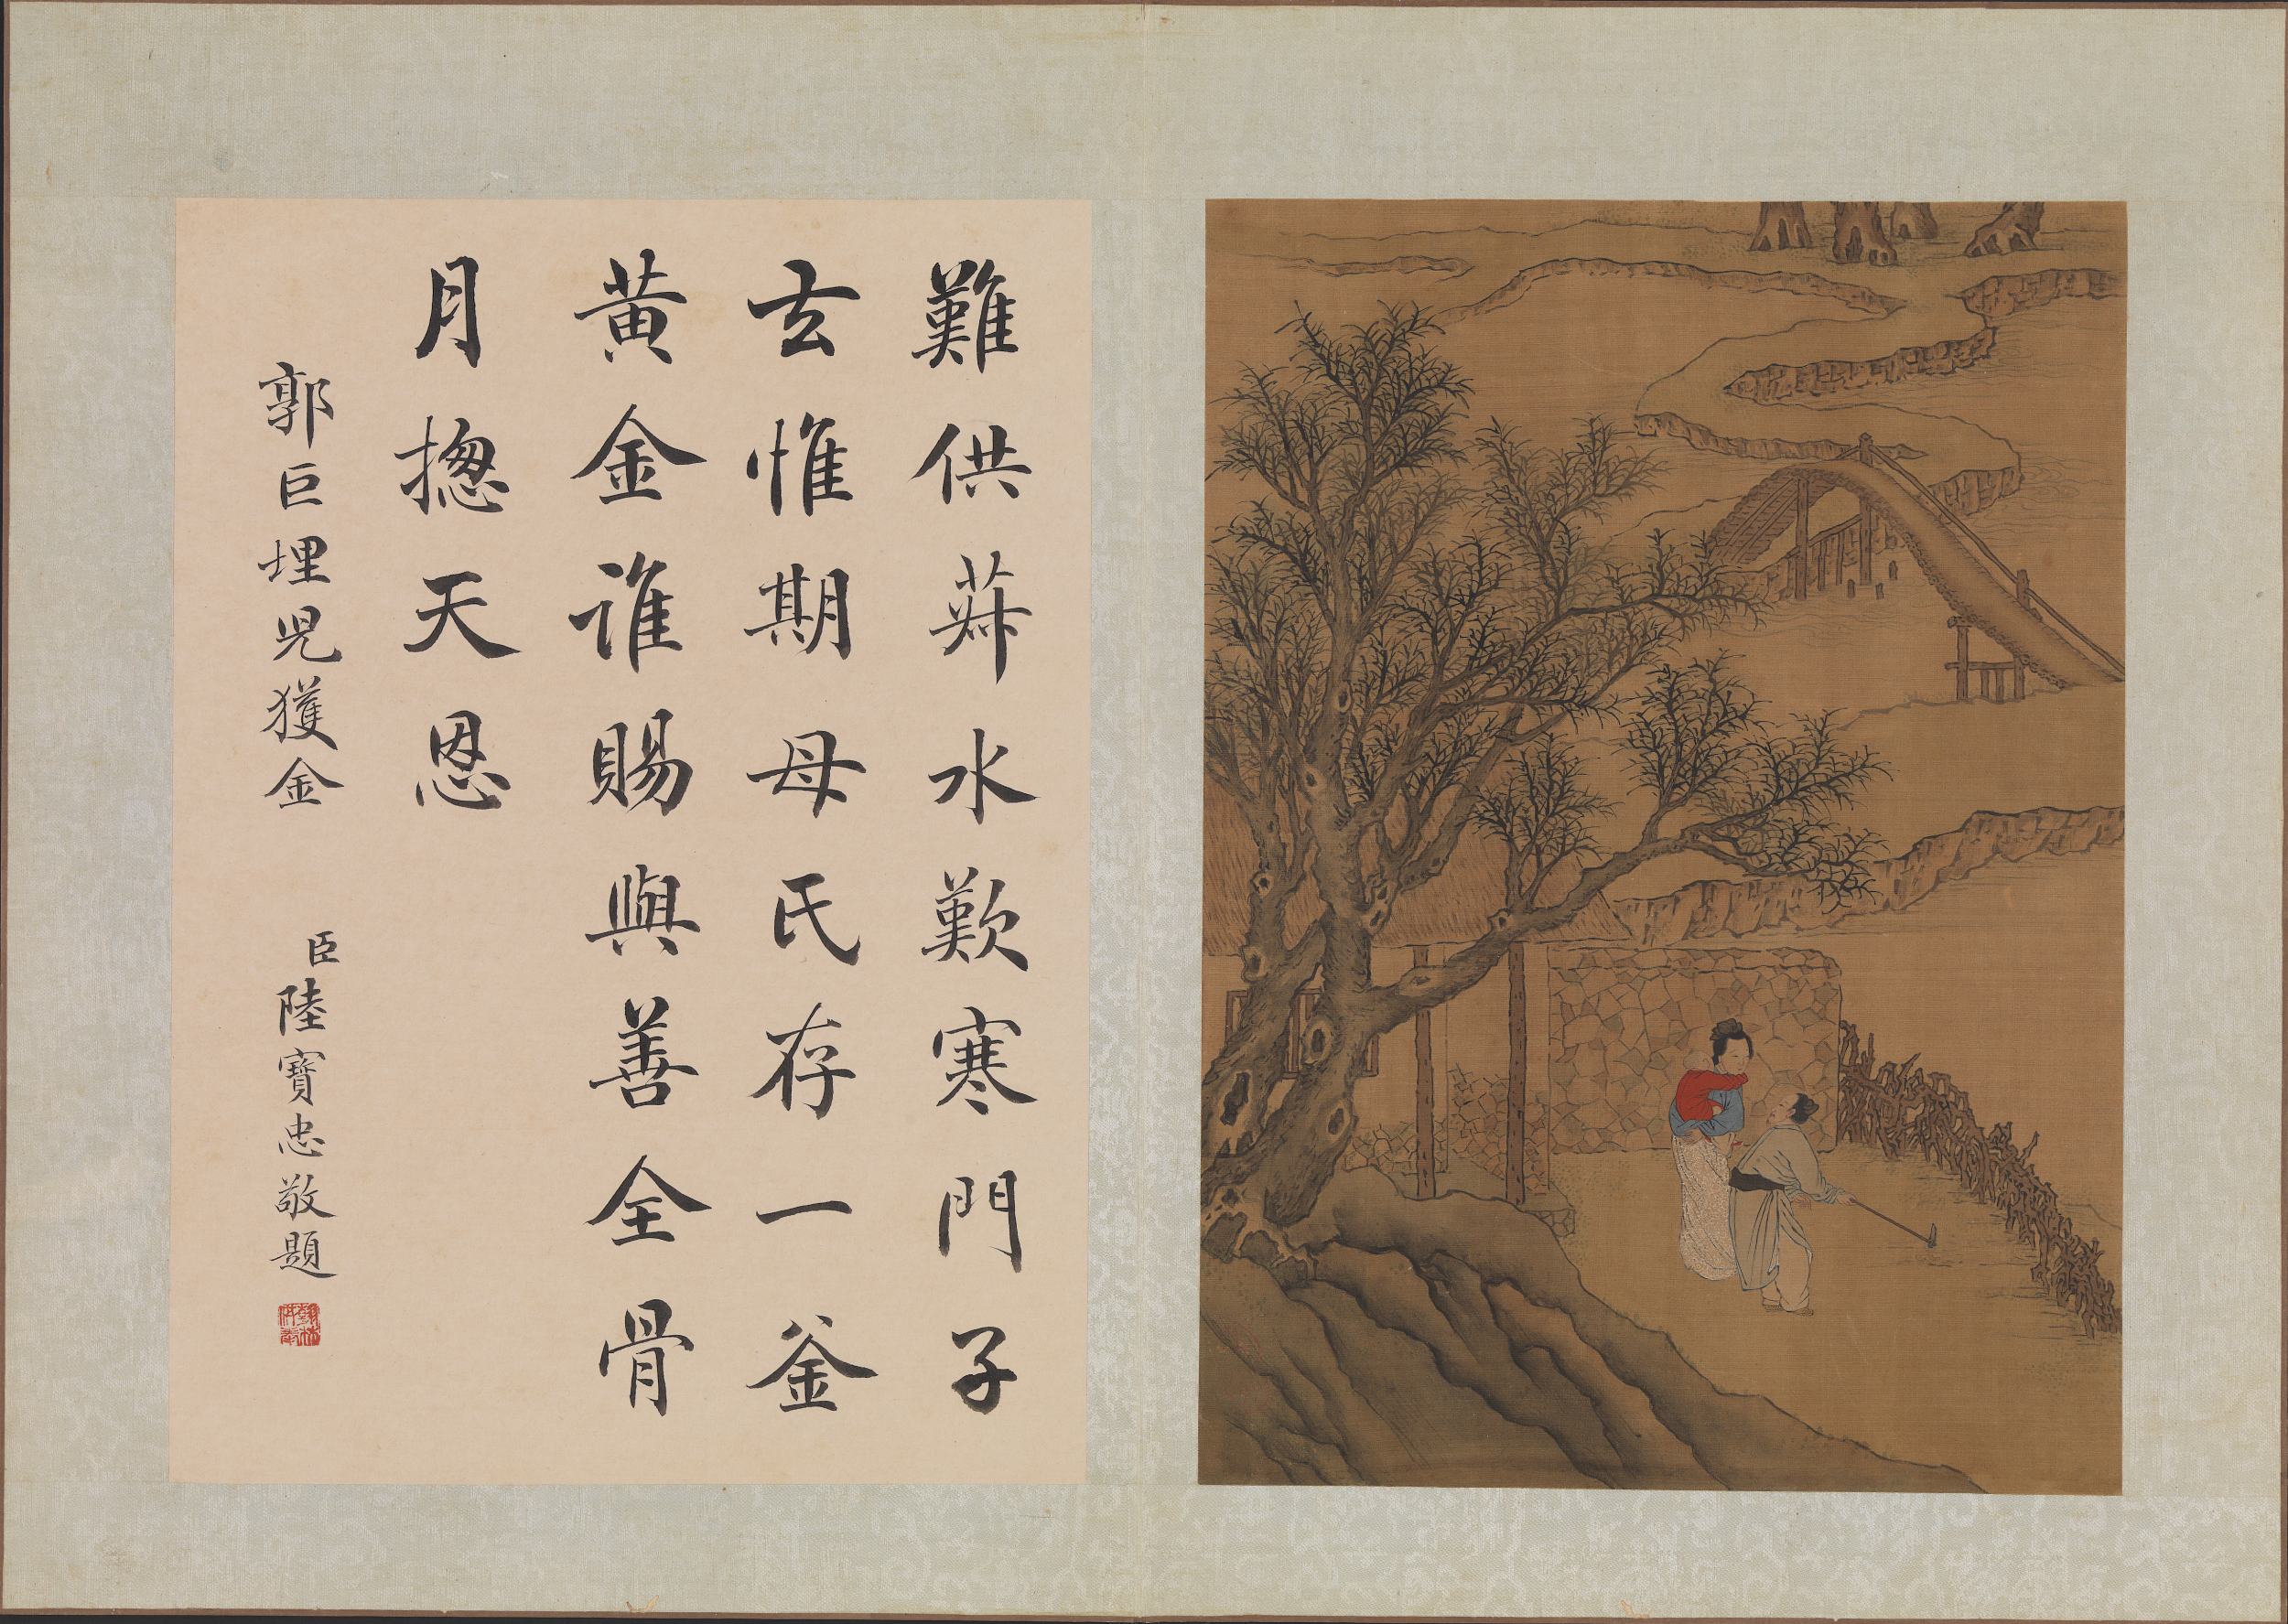 難供菽水歎寒門子
去惟期母氏存一釜
黃金誰賜與善全骨
月揔天恩
郭巨埋兒獲金 臣陸寶忠敬題
翰林供奉